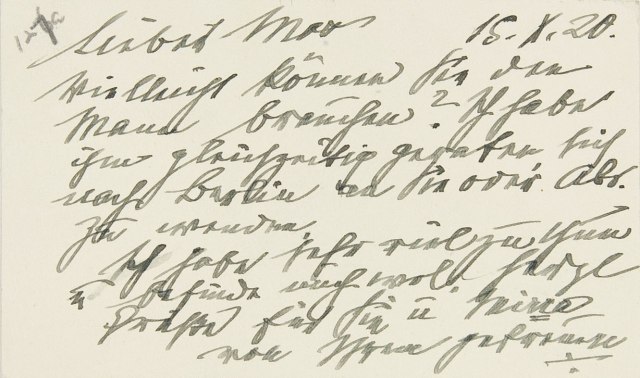 Lieber Max 15.X.20.
Vielleicht können Sie den
Mann brauchen? Ich habe
ihm gleichzeitig geraten sich
nach Berlin an Sie oder Abr.
zu wenden.
Ich habe sehr viel zu thun
u befinde mich wol. Herzl
Grüße für Sie u
von Ihrem getreuen